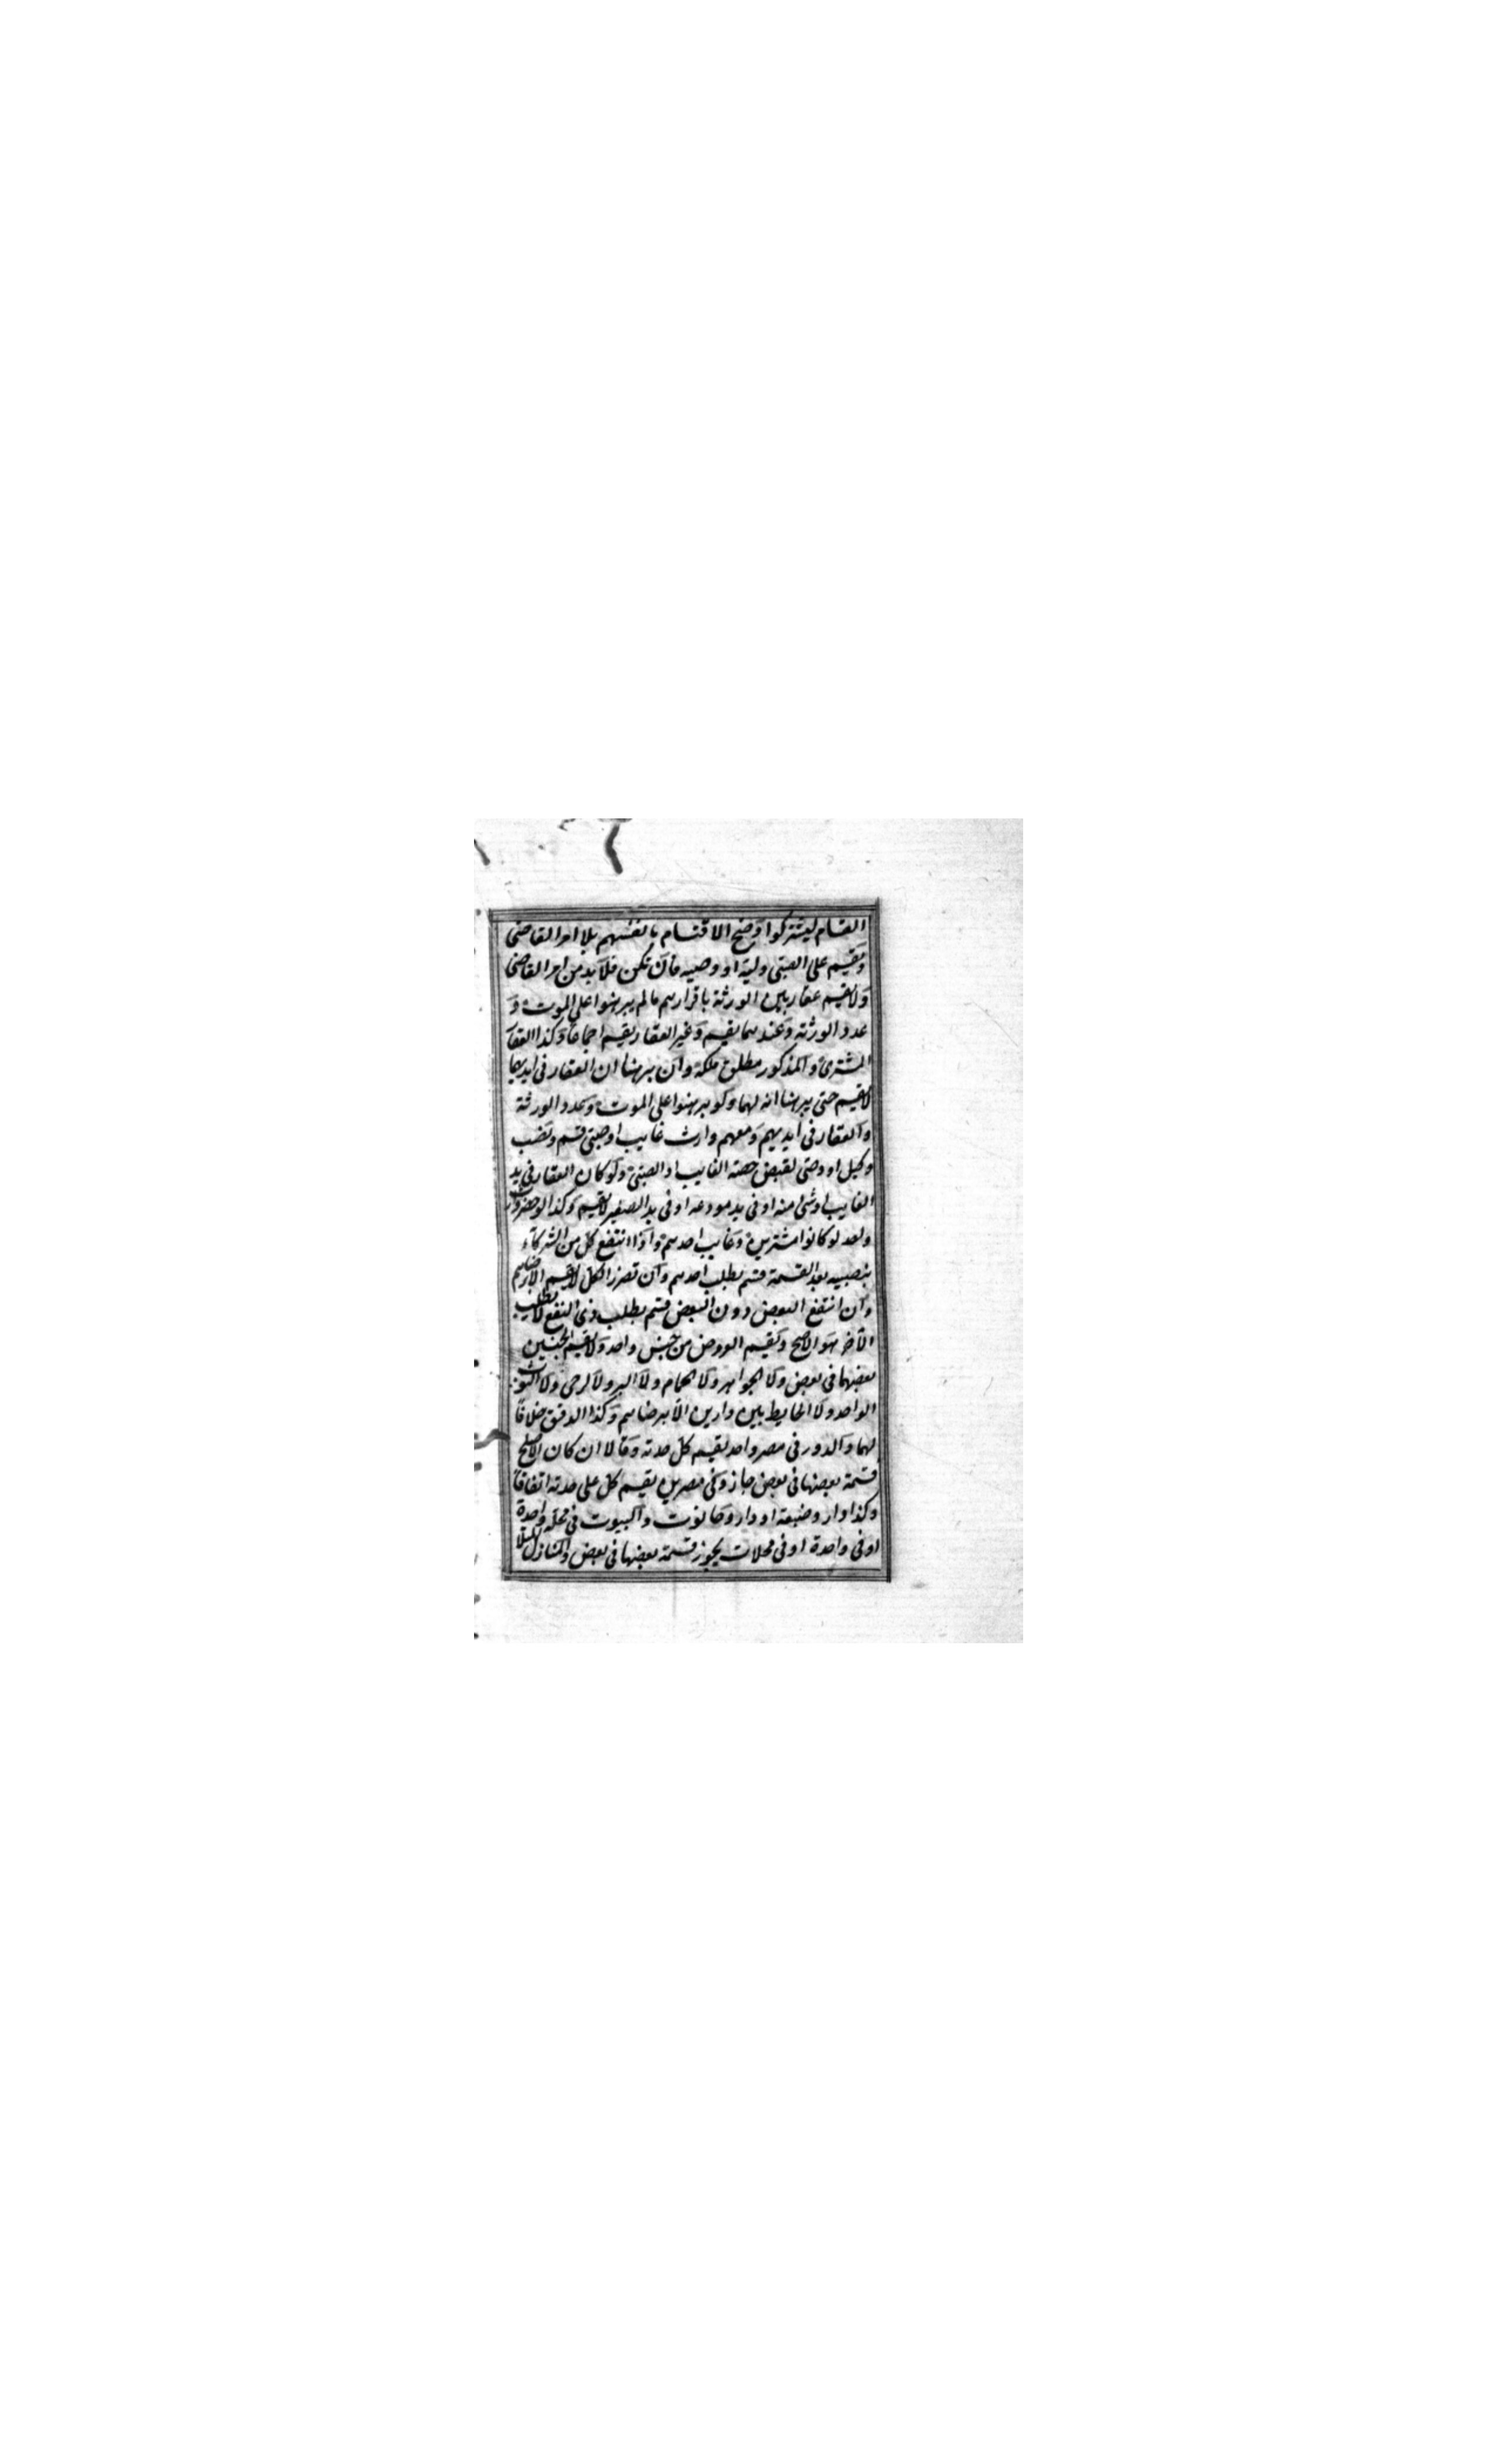 القسام ليشتركوا وصح الاقتسام بانفسهم بلا امر القاضى
ويقسم على الصبى وليه او وصيه فان لم يكن فلا بد من امر القاضى
ولا يقسم عقار بين الورثة باقرارهم مالم يبرهنوا على الموت و
عدد الورثة وعندهما يقسم وغير العقار يقسم اجماعا وكذا العقار
المشترى والمذكور مطلق ملكه وان برهنا ان العقار فى ايديهما
لا يقسم حتى يبرهنا انه لهما ولو برهنوا على الموت وعدد الورثة
والعقار فى ايديهم ومعهم وارث غايب او صبى قسم ونصب
وكيل او وصى لقبض حصة الغايب او الصبى ولو كان العقار فى يد
الغايب او شئ منه او فى يد مودعه او فى يد الصغير لا يقسم وكذا لو حضر وارث
واحد او كانوا مشترين وغايب احدهم واذا انتفع كل من الشركاء
بنصيبه بعد القسمة قسم بطلب احدهم وان تضرر الكل لا يقسم الا برضاهم
وان انتفع البعض دون البعض قسم بطلب ذى النفع لا بطلب
الآخر هو الاصح ويقسم العروض من جنس واحد ولا يقسم الجنسين
بعضهما فى بعض ولا الجواهر ولا الحمام ولا البئر ولا الرحى ولا الثوب
الواحد ولا الحايط بين دارين الا برضاهم وكذا الدقيق خلافا
لهما والدور فى مصر واحد يقسم كل حدته وقالا ان كان الاصلح
قسمة بعضها فى بعض جاز وفى مصرين يقسم كل على حدته اتفاقا
وكذا دار وضيعة او دار وحانوت والبيوت فى محلة واحدة
او فى واحدة او فى محلات يجوز قسمة بعضها فى بعض والمنازل